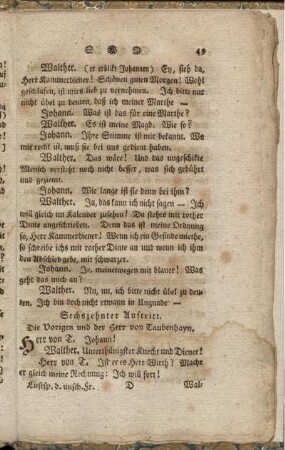 49
Walther. (er erblikt Johanten) Ey, sieh da,
Herr Kammerdiener! Schönen guten Morgen! Wohl
geschlafen, ist mirs lieb zu vernehmen. Ich bitte nur
nicht übel zu deuten, daß ich meiner Marthe —
Johann. Was ist das für eine Marthe?
Walther. Es ist meine Magd. Wie so?
Johann. Ihre Stimme ist mir bekannt. Wo
mir recht ist, muß sie bei uns gedient haben.
Walther. Das wäre! Und das ungeschikte
Mensch versteht noch nicht besser, was sich gebührt
und geziemt.
Johann. Wie lange ist sie denn bei ihm?
Walther. Ja, das kann ich nicht sagen — Ich
will gleich im Kalender zusehen! Da stehts mit rother
Dinte angeschrieben. Denn das ist meine Ordnung
so, Herr Kammerdiener! Wenn ich ein Gesinde miethe,
so schreibe ichs mit rother Dinte an und wenn ich ihm
den Abschied gebe, mit schwarzer.
Johann. Je, meinetwegen mit blauer! Was
geht das mich an?
Walther. Nu, nu, ich bitte nicht übel zu deu-
ten. Ich bin doch nicht etwann in Ungnade —
Sechszehnter Auftritt.
Die Vorigen und der Herr von Taubenhayn.
Herr von T. Johann!
Walther. Unterthänigster Knecht und Diener!
Herr von T. Ist er es Herr Wirth? Mache
er gleich meine Rechnung: Ich will fort!
Lustsp. d. unsch. Fr. D Wal-